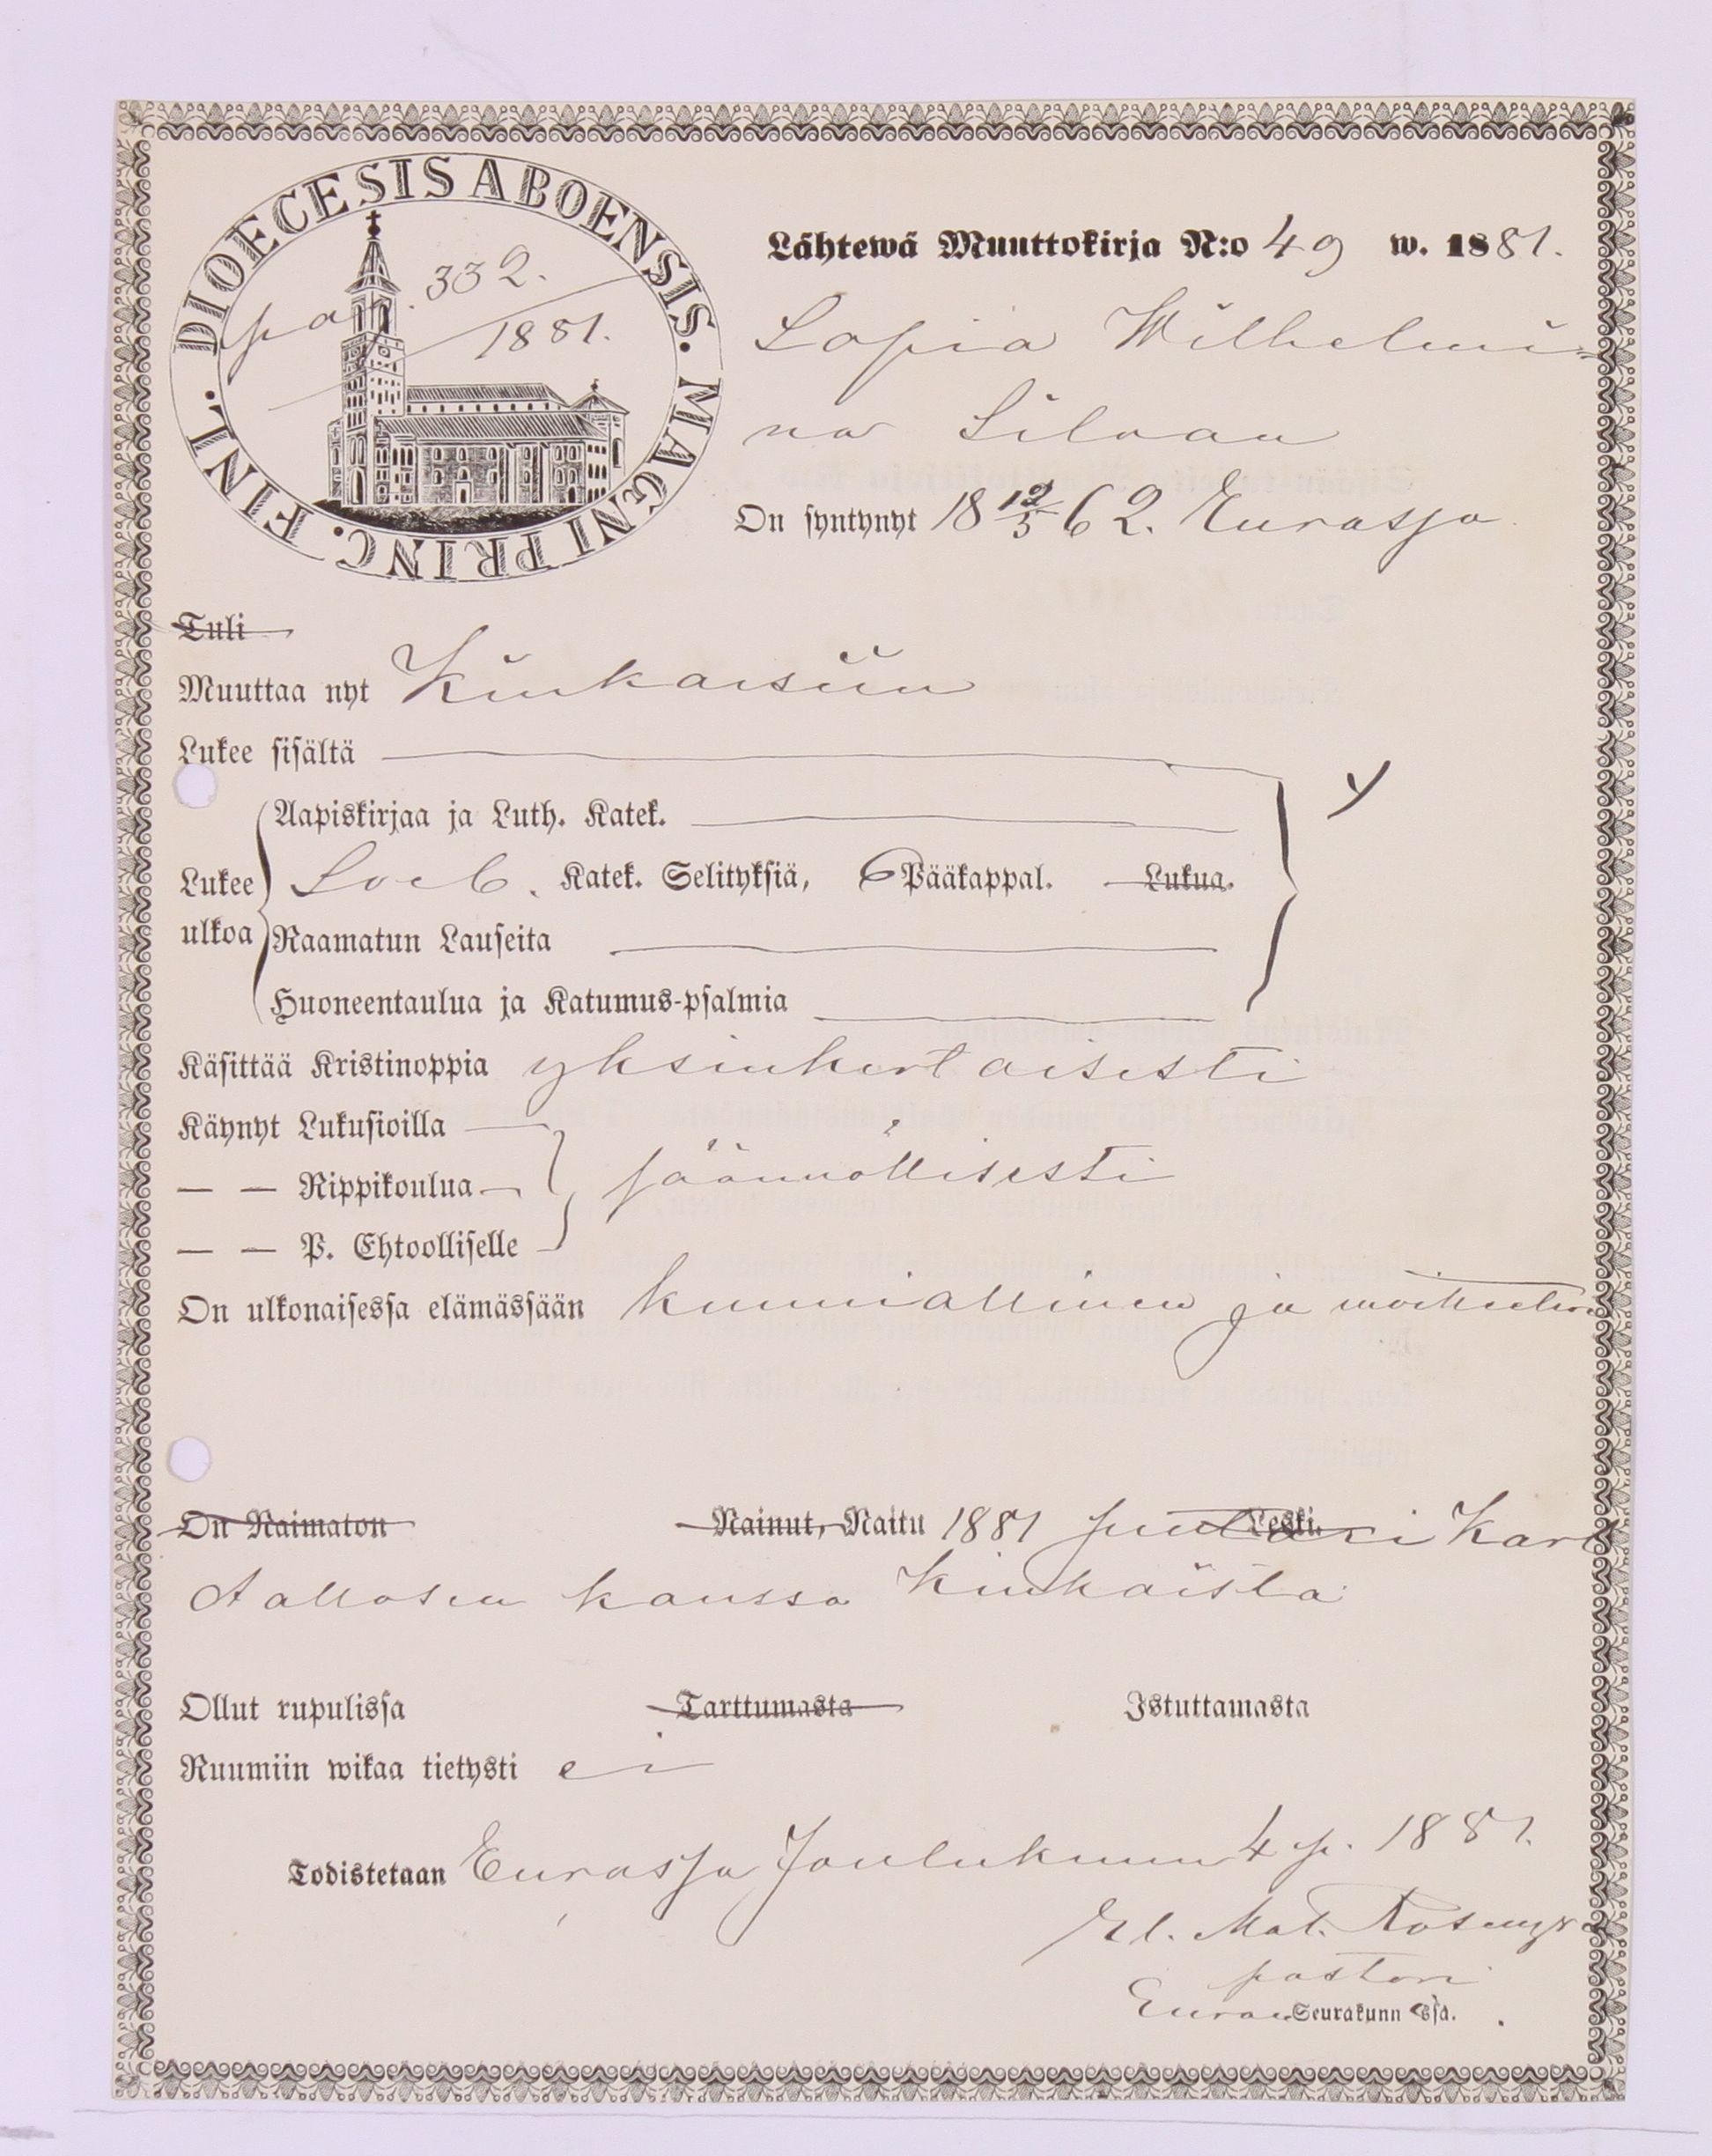 DIOECESIS ABOENSIS. MAGNI PRINC. FINL.
pag. 332.
1881.
Lähtewä Muuttokirja N:o 49 w. 1881.
Sofia Wilhelmi-
na Silvan
On syntynyt 18 12/5 62. Eurassa
Tuli
Muuttaa nyt Kiukaisiin
Lukee sisältä
Aapiskirjaa ja Luth. Katek.
Lukee ulkoa
Katek. Selityksiä, 6 Pääkappal. Lukua.
Raamatun Lauseita
Huoneentaulua ja Katumus-psalmia
Käsittää Kristinoppia yksinkertaisesti
Käynyt Lukusioilla
— — Rippikoulua säännöllisesti
— — P. Ehtoolliselle
On ulkonaisessa elämässään kunniallinen ja
On Naimaton Nainut, Naitu 1881 Leski. Karl
Aallosen kanssa Kiukaista
Ollut rupulissa Tarttumasta Istuttamasta
Ruumiin wikaa tietysti ei
Todistetaan Eurassa Joulukuun 4 p. 1881.
pastori
Euran Seurakunnassa.